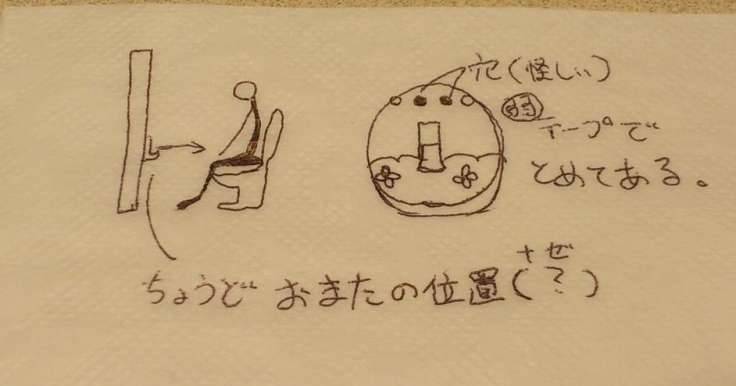 穴(怪しい)
テープで
とめてある。
ナゼ
ちょうど おまたの位置(?)